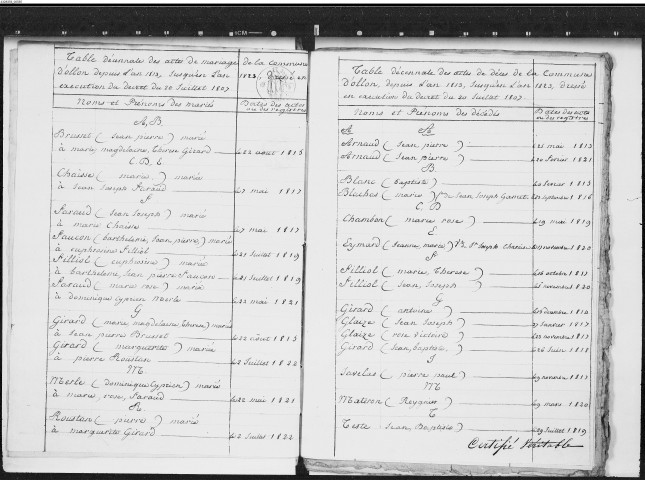 Table décennale des actes de mariage de la Commune
d'ollon depuis l'an 1813, jusqu'en l'an 1823, dressé en
execution du decret du 20 Juillet 1807
Noms et Prénoms des mariés
Dates des actes
ou des registres
A, B
Brusset (Jean pierre) marié
à marie magdelaine, thérèse Girard
le 22 août 1815
C. D. E
Chaisse (marie) mariée
à Jean Joseph Faraud
le 7 mai 1817
F
Faraud (Jean Joseph) marié
à marie Chaisse
le 7 mai 1817
Faucon (barthelemi, Jean pierre) marié
à euphrosine Filliol
le 21 Juillet 1819
Filliol (euphrosine) mariée
à barthelemi, Jean pierre Faucon
le 21 Juillet 1819
Faraud (marie rose) mariée
à dominique Cyprien Merle
le 22 mai 1821
G
Girard (marie magdelaine, thérèse) mariée
à Jean pierre Brusset
le 22 août 1815
Girard (marguerite) mariée
à pierre Roustan
le 2 Juillet 1822
M
Merle (Dominique Cyprien) marié
à marie, rose, Faraud
le 22 mai 1821
R
Roustan (pierre) marié
à marguerite Girard
le 2 Juillet 1822
Table décennale des actes de décès de la Commune
d'ollon, depuis l'an 1813, Jusqu'en l'an 1823, dressé
en execution du decret du 20 Juillet 1807
Noms et Prénoms des décédés
Dates des actes
ou des registres
A
Arnaud (Jean pierre) mai 1813
Arnaud (Jean Pierre) le 20 fevrier 1821
B
Blanc (baptiste) fevrier 1815
Blaches (marie) Joseph Garnet septembre 1816
C D
Chambon (marie rose) le 19 mai 1819
E
Eymard (Jeanne, marie) Joseph novembre 1820
F
Filliol (marie, Therese) octobre 1817
Filliol (Jean, Joseph) novembre 1820
G
Girard (antoine) 1810
Glaize (Jean Joseph) Janvier 1817
Glaize (rose victoire) novembre 1817
Girard (Jean, baptiste) Juin 1818
J
Javelas (pierre) novembre 1817
M
Matiron mars 1820
T
Teste (Jean Baptiste) Juillet 1819
Certifié Véritable